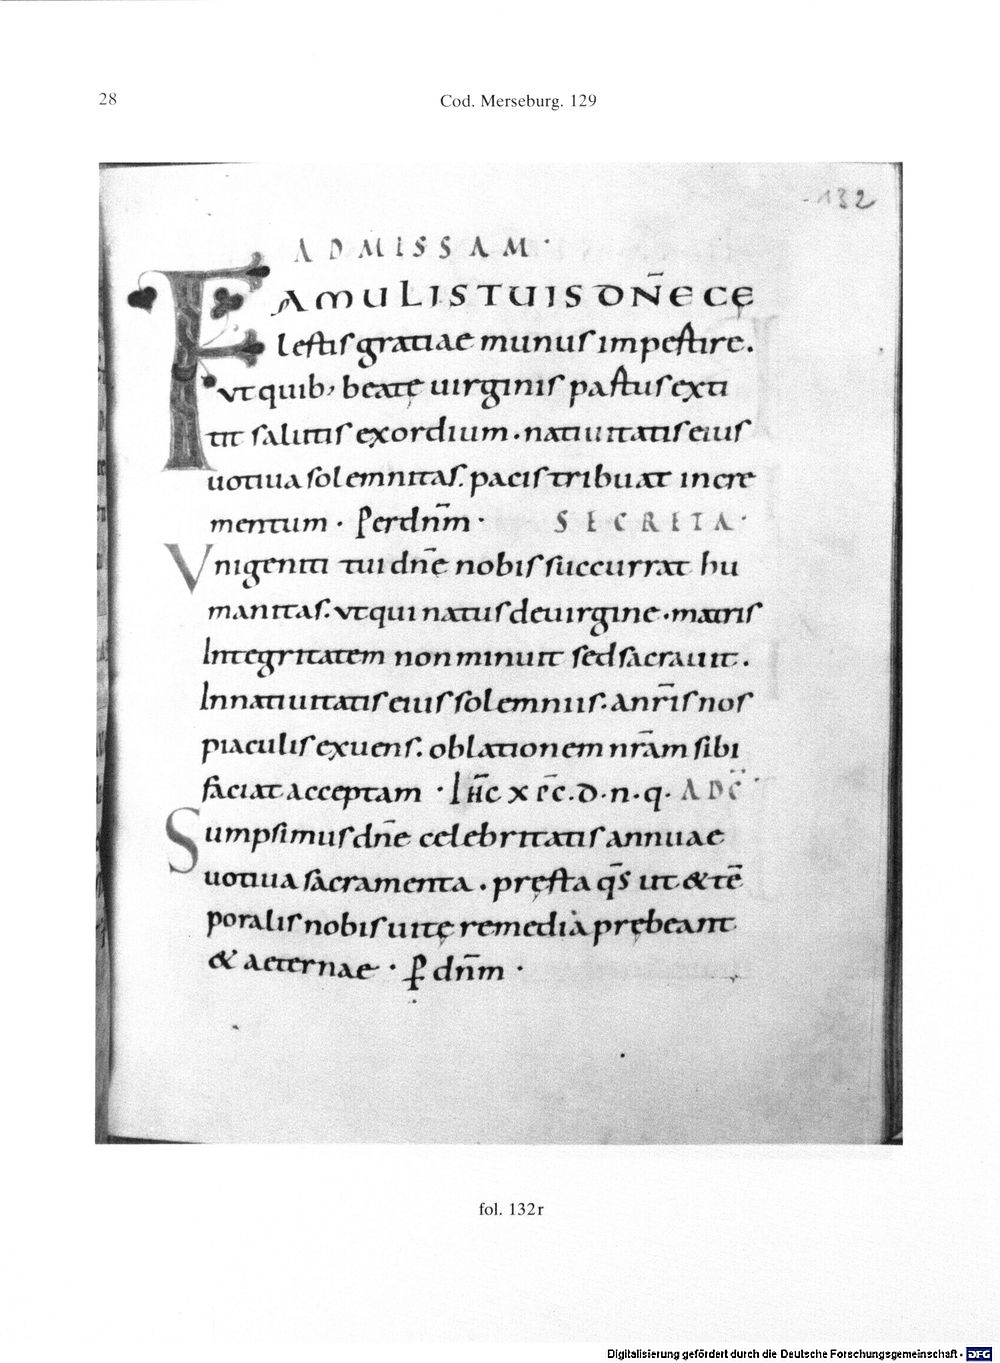 28
Cod. Merseburg. 129
132
ADMISSAM·
FAMULIS TUIS DÑE CĘ
lestis gratiae munus impestire.
Vt quib; beatę uirginis pastus exti
tit salutis exordium. natiuitatis eius
uotiua solemnitas. pacis tribuat incre
mentum. Per dn̄m.   SECRETA·
Vnigeniti tui dn̄e nobis succurrat hu
manitas. ut qui natus de uirgine. matris
Integritatem non minuit sed sacrauit.
In natiuitatis eius solemniis. A nr̄is nos
piaculis exuens. oblationem nr̄am sibi
faciat acceptam. Ih̄c xp̄c. d. n. q. AD C̄
Sumpsimus dn̄e celebritatis annuae
uotiua sacramenta. pręsta q̄s ut & tē
poralis nobis uitę remedia prębeant
& aeternae. P dn̄m.
fol. 132r
Digitalisierung gefördert durch die Deutsche Forschungsgemeinschaft - DFG